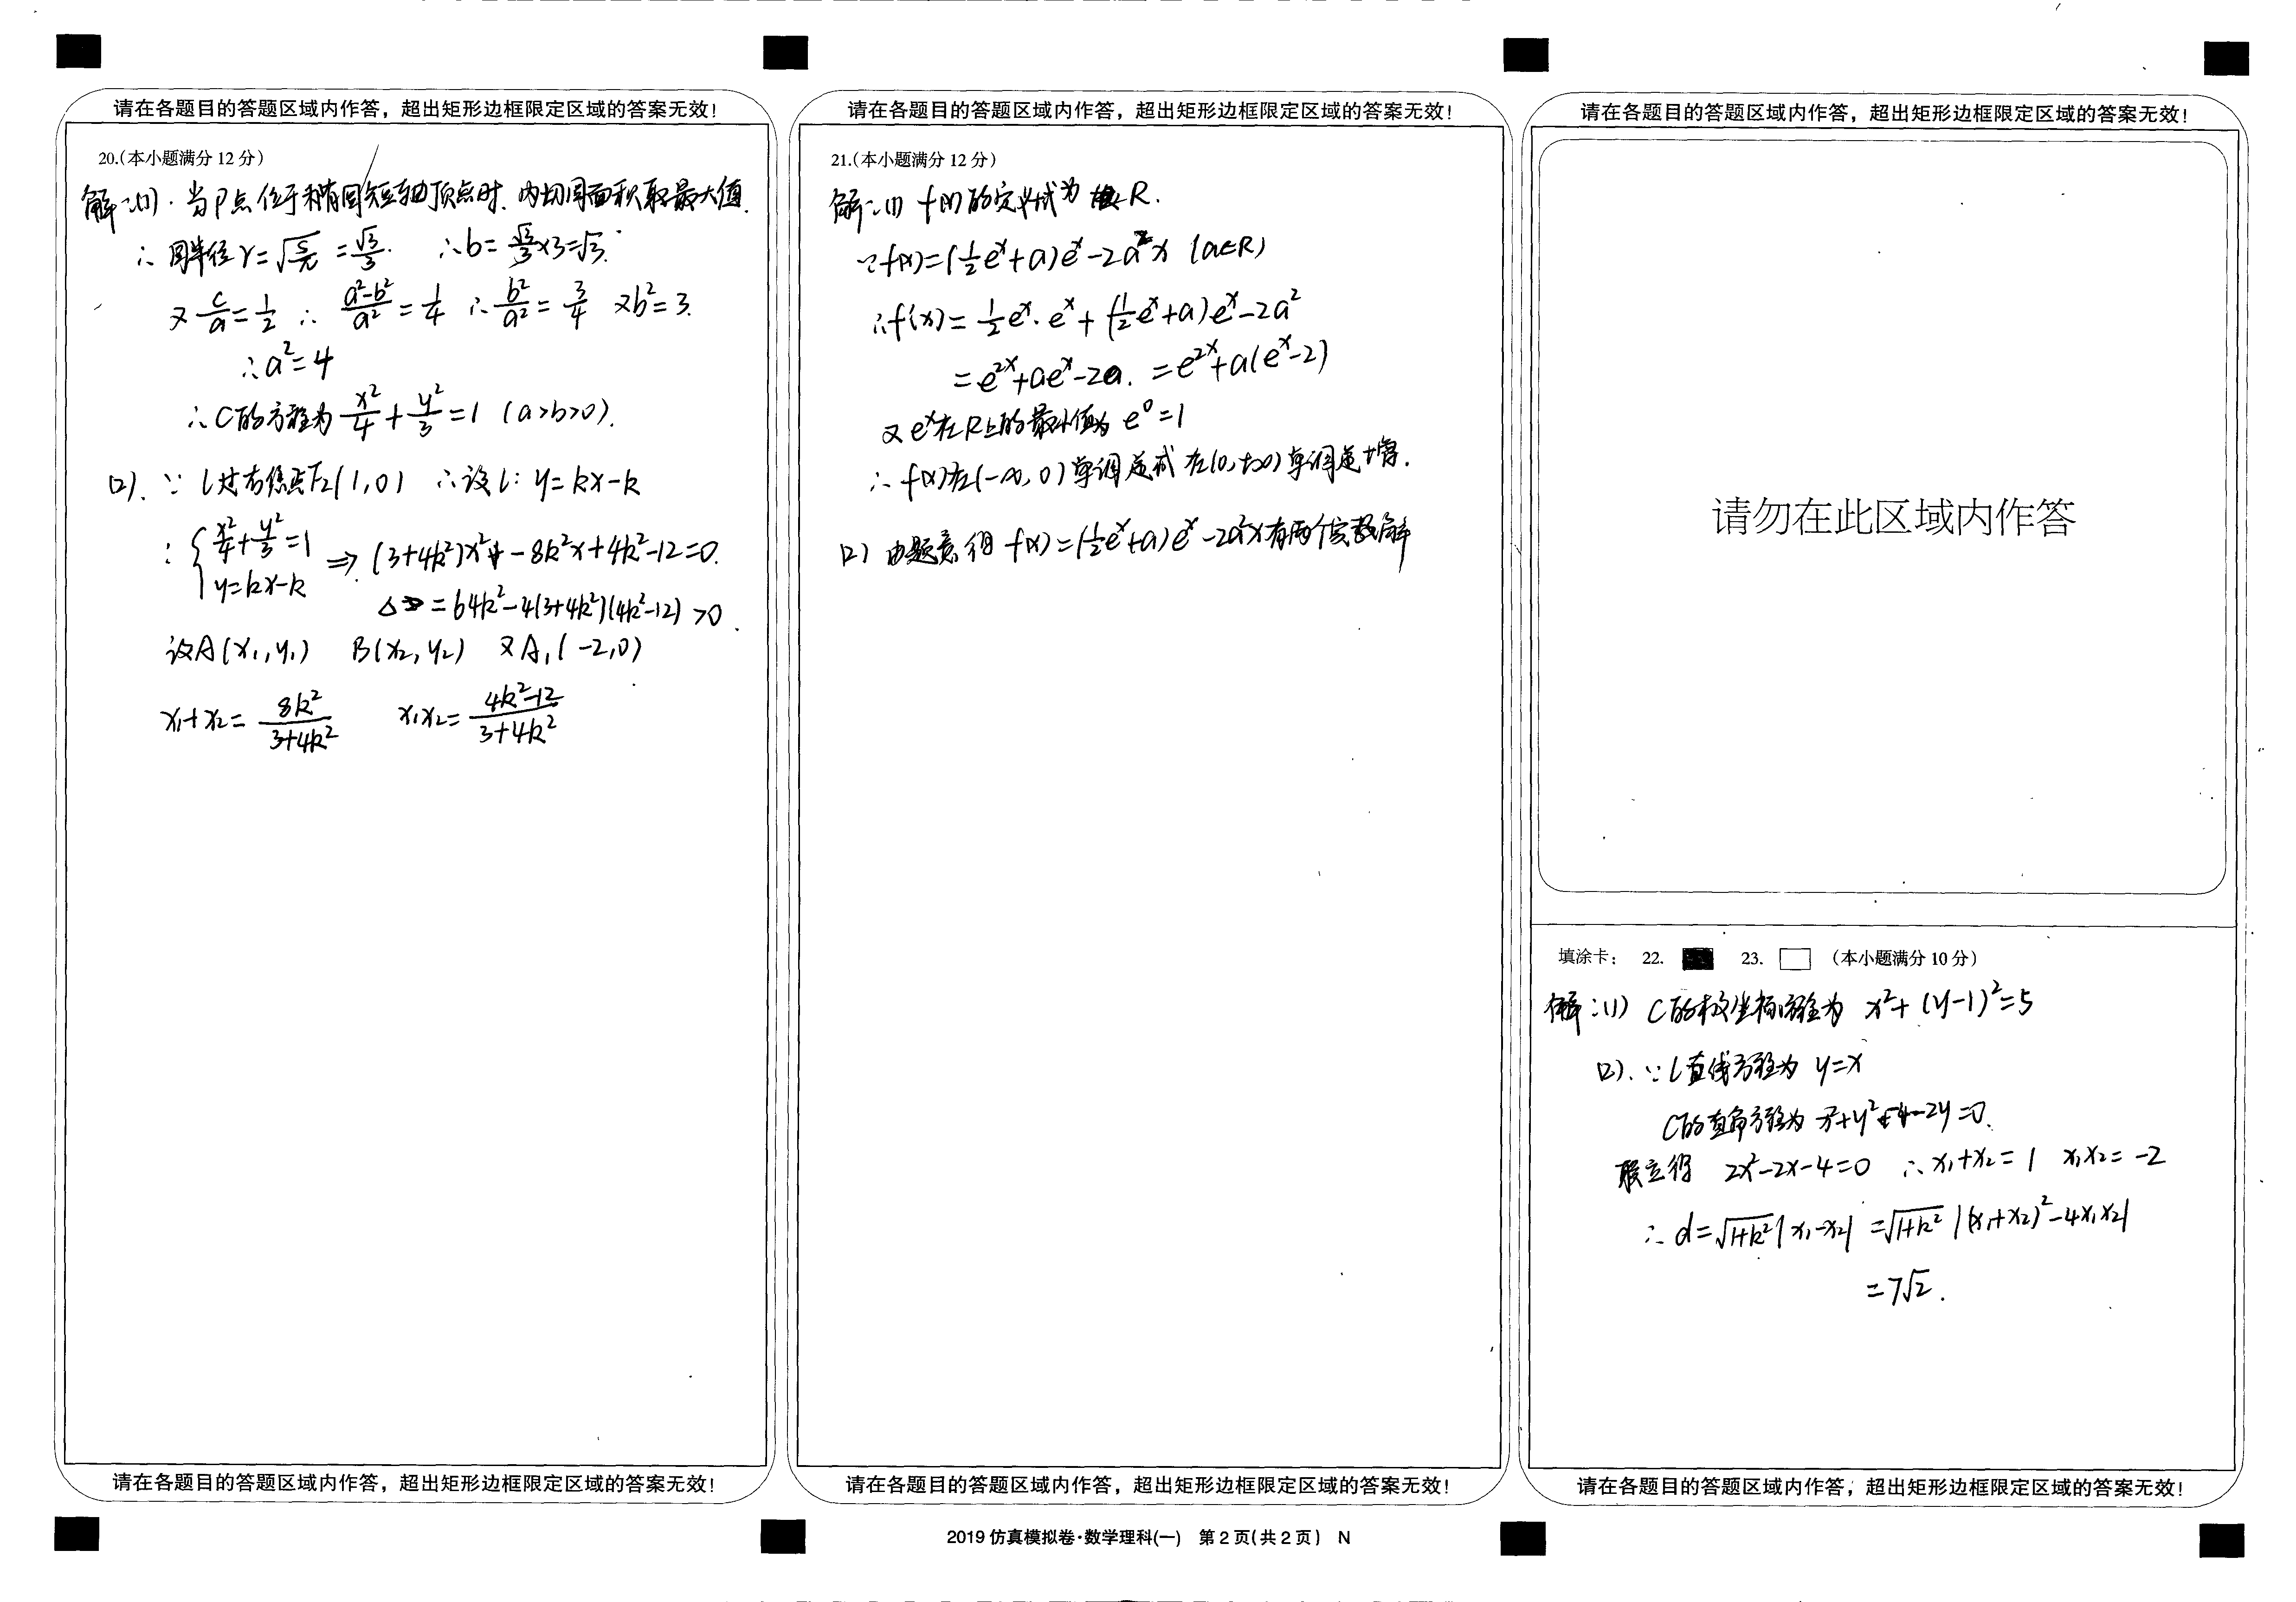 请在各题目的答题区域内作答，超出矩形边框限定区域的答案无效！
20.(本小题满分 12 分)
解:(1).当P点位于椭圆短轴顶点时.内切圆面积取最大值.
∴圆半径r=√(S/π)=√3/3. ∴b=√3/3×3=√3.
又c/a=1/2 ∴(a²-b²)/a²=1/4 ∴b²/a²=3/4 又b²=3.
∴a²=4
∴C的方程为x²/4+y²/3=1 (a>b>0).
(2).∵l过右焦点F₂(1,0) ∴设l: y=kx-k
∴{x²/4+y²/3=1
y=kx-k ⇒(3+4k²)x²-8k²x+4k²-12=0.
Δ=64k²-4(3+4k²)(4k²-12)>0.
设A(x₁,y₁) B(x₂,y₂) 又A₁(-2,0)
x₁+x₂=8k²/(3+4k²) x₁x₂=(4k²-12)/(3+4k²)
请在各题目的答题区域内作答，超出矩形边框限定区域的答案无效！
请在各题目的答题区域内作答，超出矩形边框限定区域的答案无效！
21.(本小题满分 12 分)
解:(1) f(x)的定义域为R.
∵f(x)=(½eˣ+a)eˣ-2a²x (a∈R)
∴f'(x)=½eˣ·eˣ+(½eˣ+a)eˣ-2a²
=e²ˣ+aeˣ-2a.=e²ˣ+a(eˣ-2)
又eˣ在R上的最小值为e⁰=1
∴f(x)在(-∞,0)单调递减在(0,+∞)单调递增.
(2) 由题意得f(x)=(½eˣ+a)eˣ-2a²x有两个实数解
请在各题目的答题区域内作答，超出矩形边框限定区域的答案无效！
请在各题目的答题区域内作答，超出矩形边框限定区域的答案无效！
请勿在此区域内作答
填涂卡： 22. 23. (本小题满分 10 分)
解:(1) C的极坐标方程为 x²+(y-1)²=5
(2).∵l直线方程为 y=x
C的直角方程为x²+y²-4-2y=0.
联立得 2x²-2x-4=0 ∴x₁+x₂=1 x₁x₂=-2
∴d=√(1+k²)|x₁-x₂|=√(1+k²)|(x₁+x₂)²-4x₁x₂|
=7√2.
请在各题目的答题区域内作答，超出矩形边框限定区域的答案无效！
2019 仿真模拟卷·数学理科(一) 第 2 页(共 2 页) N